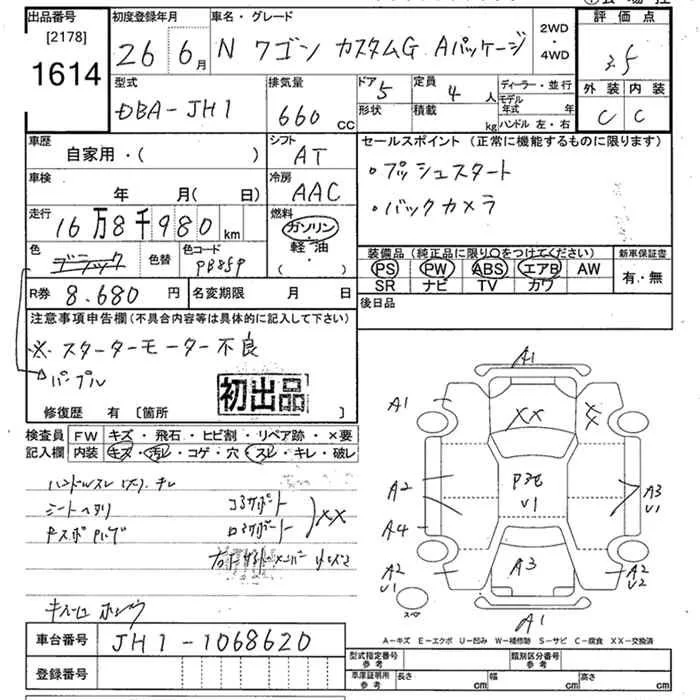 出品番号
[2178]
1614
初度登録年月
26 6月
車名・グレード
N ワゴン カスタムG Aパッケージ
2WD
・
4WD
評価点
3.5
外装 内装
C C
型式
DBA-JH1
排気量
660 cc
ドア 5
形状
定員 4 人
積載 kg
ディーラー・並行
モデル年式 年
ハンドル 左・右
車歴
自家用・( )
シフト
AT
セールスポイント (正常に機能するものに限ります)
・プッシュスタート
・バックカメラ
車検
年 月( 日)
冷房
AAC
走行
16万8千980 km
燃料
ガソリン
・
軽・油
( ・ )
色
ブラック
色替
色コード
PB85P
装備品 (純正品に限り○をつけてください)
新車保証書
PS PW ABS エアB AW
SR ナビ TV カワ
有・無
R券 8.680 円
名変期限 月 日
後日品
注意事項申告欄(不具合内容等は具体的に記入して下さい)
※スターターモーター不良
パープル
初出品
修復歴 有 [箇所 ]
検査員記入欄
FW キズ・飛石・ヒビ割・リペア跡・×要
内装 キズ・汚レ・コゲ・穴・スレ・キレ・破レ
シートヘタリ
コアサポート
ロアサポート
XX
A1
A1
XX
A2
A3
V1
A4
A2
V1
A2
V2
A3
V1
A1
スペア
A-キズ E-エクボ U-凹み W-補修跡 S-サビ C-腐食 XX-交換済
車台番号
JH1-1068620
登録番号
型式指定番号
参考
類別区分番号
参考
車庫証明用
参考
長さ cm
幅 cm
高さ cm